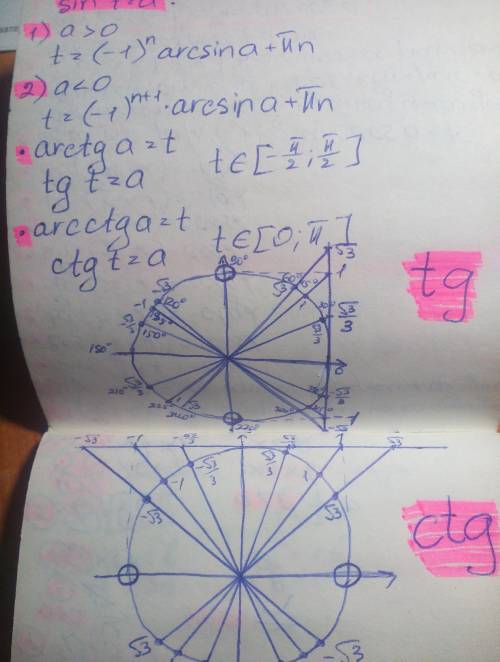 sin t = a.
1) a > 0
t = (-1)^n arcsin a + πn
2) a < 0
t = (-1)^(n+1) · arcsin a + πn
• arctg a = t
t ∈ [-π/2; π/2]
tg t = a
• arcctg a = t
t ∈ [0; π]
ctg t = a
tg
90°
√3
-√3
60°
√3
1
-1
120°
1
135°
√3/3
150°
180°
0
210°
225°
1
√3
240°
270°
-1
-√3 -1 -√3/3 √3/3 1 √3
ctg
-√3/3
√3/3
-1
1
-√3
√3
√3
-√3